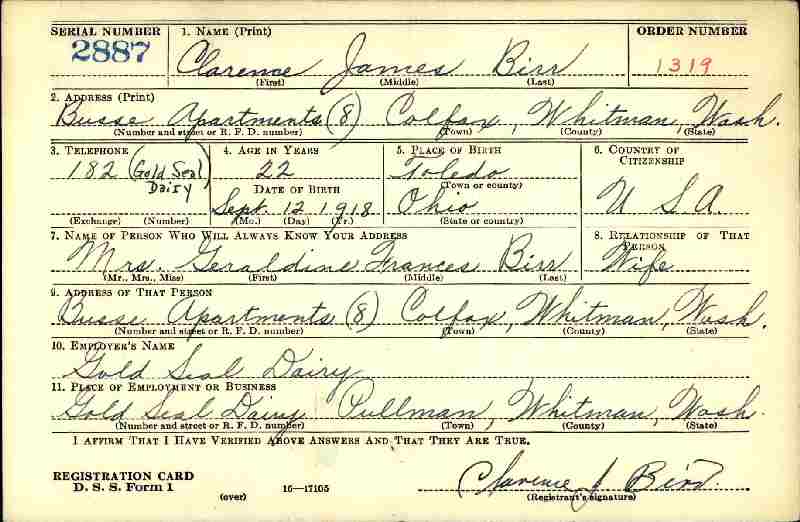 SERIAL NUMBER 1. NAME (Print) ORDER NUMBER
2887 Clarence James Birr 1319
(First) (Middle) (Last)
2. ADDRESS (Print)
Busse Apartments (8) Colfax, Whitman, Wash.
(Number and street or R. F. D. number) (Town) (County) (State)
3. TELEPHONE 4. AGE IN YEARS 5. PLACE OF BIRTH 6. COUNTRY OF CITIZENSHIP
182 (Gold Seal Dairy) 22 Toledo
DATE OF BIRTH (Town or county)
Sept. 12 1918 Ohio U S A.
(Exchange) (Number) (Mo.) (Day) (Yr.) (State or country)
7. NAME OF PERSON WHO WILL ALWAYS KNOW YOUR ADDRESS 8. RELATIONSHIP OF THAT PERSON
Mrs. Geraldine Frances Birr Wife
(Mr., Mrs., Miss) (First) (Middle) (Last)
9. ADDRESS OF THAT PERSON
Busse Apartments (8) Colfax, Whitman, Wash.
(Number and street or R. F. D. number) (Town) (County) (State)
10. EMPLOYER'S NAME
Gold Seal Dairy
11. PLACE OF EMPLOYMENT OR BUSINESS
Gold Seal Dairy Pullman, Whitman, Wash.
(Number and street or R. F. D. number) (Town) (County) (State)
I AFFIRM THAT I HAVE VERIFIED ABOVE ANSWERS AND THAT THEY ARE TRUE.
REGISTRATION CARD
D. S. S. Form 1 Clarence J Birr.
(over) 16—17105 (Registrant's signature)